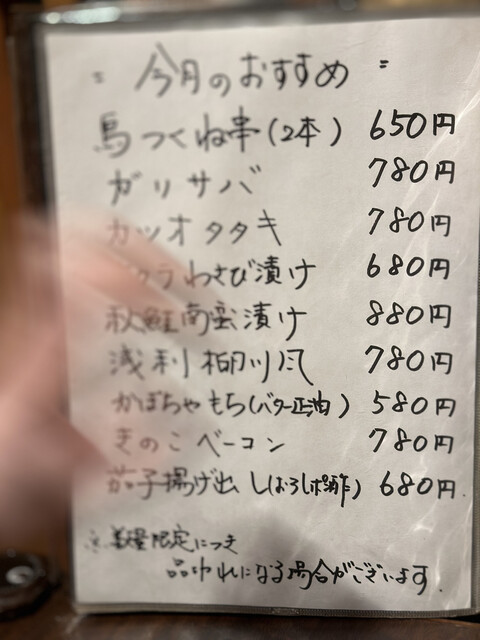 今月のおすすめ
つくね串(2本) 650円
ガリサバ 780円
カツオタタキ 780円
わさび漬け 680円
秋鮭南蛮漬け 880円
浅利柳川風 780円
かぼちゃもち(バター正油) 580円
きのこベーコン 780円
茄子揚げ出し(おろしポン酢) 680円
※数量限定につき
品切れになる場合がございます。